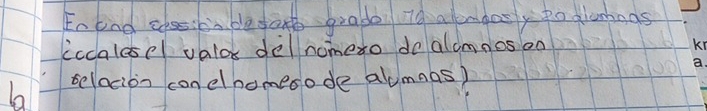 En una sesion de sexto grado 19 alumnos y 20 alumnas
¿cual es el valor del número de alumnos en
relación con el numero de alumnas)
b
kr
a.